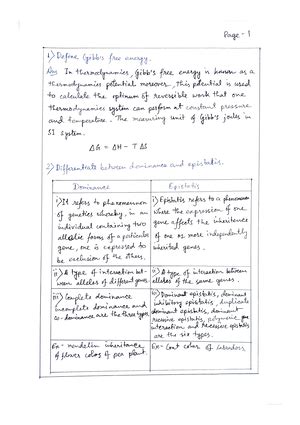 Page - 1
1) Define Gibb's free energy.
Ans In thermodynamics, Gibb's free energy is known as a
thermodynamics potential moreover, this potential is used
to calculate the optimum of reversible work that one
thermodynamics system can perform at constant pressure
and temperature. The measuring unit of Gibb's joules in
SI system.
ΔG = ΔH - TΔS
2) Differentiate between dominance and epistatis.
Dominance
i) It refers to phenomenon
of genetics whereby, in an
individual containing two
allelic forms of a particular
gene, one is expressed to
be exclusion of the others.
ii) A type of interaction bet-
ween alleles of different genes.
iii) Complete dominance
incomplete dominance and
co-dominance are the three types
Ex - mendelian inheritance
of flower color of pea plant.
Epistatis
i) Epistatis refers to a phenomenon
where the expression of one
gene affects the inheritance
of one or more independently
inherited genes.
ii) A type of interaction between
alleles of the same genes.
iii) Dominant epistatis, dominant
inhibitory epistatis, duplicate
dominant epistatis, dominant
recessive epistatis, polymeric gene
interaction and recessive epistatis
are the six types.
Ex - Coat color of labradors